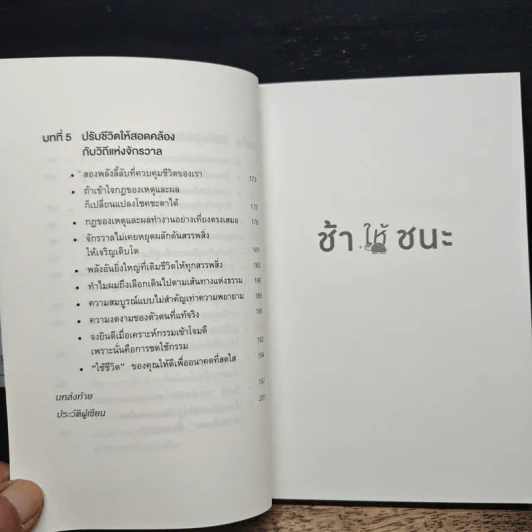 บทที่ 5 ปรับชีวิตให้สอดคล้อง
กับวิถีแห่งจักรวาล
• สองพลังลี้ลับที่ควบคุมชีวิตของเรา 173
• ถ้าเข้าใจกฎของเหตุและผล
ก็เปลี่ยนแปลงโชคชะตาได้ 175
• กฎของเหตุและผลทำงานอย่างเที่ยงตรงเสมอ 178
• จักรวาลไม่เคยหยุดผลักดันสรรพสิ่ง
ให้เจริญเติบโต 181
• พลังอันยิ่งใหญ่ที่เติมชีวิตให้ทุกสรรพสิ่ง 183
• ทำไมผมถึงเลือกเดินไปตามเส้นทางแห่งธรรม 186
• ความสมบูรณ์แบบไม่สำคัญเท่าความพยายาม 188
• ความงดงามของตัวตนที่แท้จริง 190
• จงยินดีเมื่อเคราะห์กรรมเข้าโจมตี
เพราะนั่นคือการชดใช้กรรม 192
• "ใช้ชีวิต" ของคุณให้ดีเพื่ออนาคตที่สดใส 194
บทส่งท้าย 197
ประวัติผู้เขียน
ช้า ให้ ชนะ